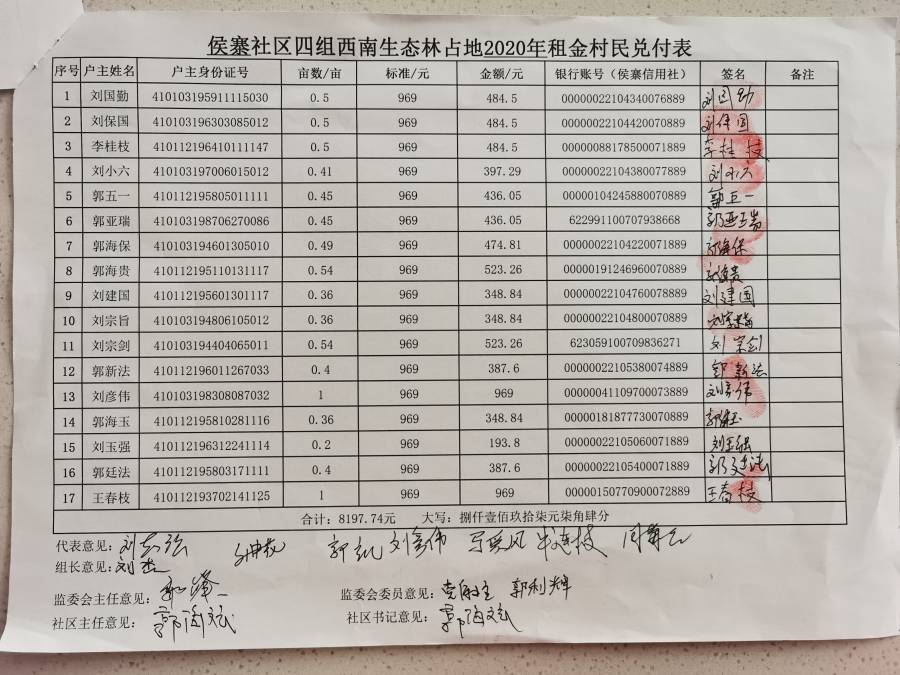 侯寨社区四组西南生态林占地2020年租金村民兑付表
序号 户主姓名 户主身份证号 亩数/亩 标准/元 金额/元 银行账号（侯寨信用社） 签名 备注
1 刘国勤 410103195911115030 0.5 969 484.5 00000022104340076889 刘国勤
2 刘保国 410103196303085012 0.5 969 484.5 00000022104420070889 刘保国
3 李桂枝 410112196410111147 0.5 969 484.5 00000088178500071889 李桂枝
4 刘小六 410103197006015012 0.41 969 397.29 00000022104380077889 刘小六
5 郭五一 410112195805011111 0.45 969 436.05 00000104245880070889 郭五一
6 郭亚瑞 410103198706270086 0.45 969 436.05 622991100707938668 郭亚瑞
7 郭海保 410103194601305010 0.49 969 474.81 00000022104220071889 郭海保
8 郭海贵 410112195110131117 0.54 969 523.26 00000191246960070889 郭海贵
9 刘建国 410112195601301117 0.36 969 348.84 00000022104760078889 刘建国
10 刘宗旨 410103194806105012 0.36 969 348.84 00000022104800070889
11 刘宗剑 410103194404065011 0.54 969 523.26 623059100709836271 刘宗剑
12 郭新法 410112196011267033 0.4 969 387.6 00000022105380074889 郭新法
13 刘彦伟 410103198308087032 1 969 969 00000041109700073889 刘彦伟
14 郭海玉 410112195810281116 0.36 969 348.84 00000181877730070889 郭海玉
15 刘玉强 410112196312241114 0.2 969 193.8 00000022105060071889 刘玉强
16 郭廷法 410112195803171111 0.4 969 387.6 00000022105400071889 郭廷法
17 王春枝 410112193702141125 1 969 969 00000150770900072889 王春枝
合计：8197.74元 大写：捌仟壹佰玖拾柒元柒角肆分
代表意见： 刘彦伟
组长意见：刘杰
监委会主任意见： 监委会委员意见： 郭利辉
社区主任意见： 社区书记意见：